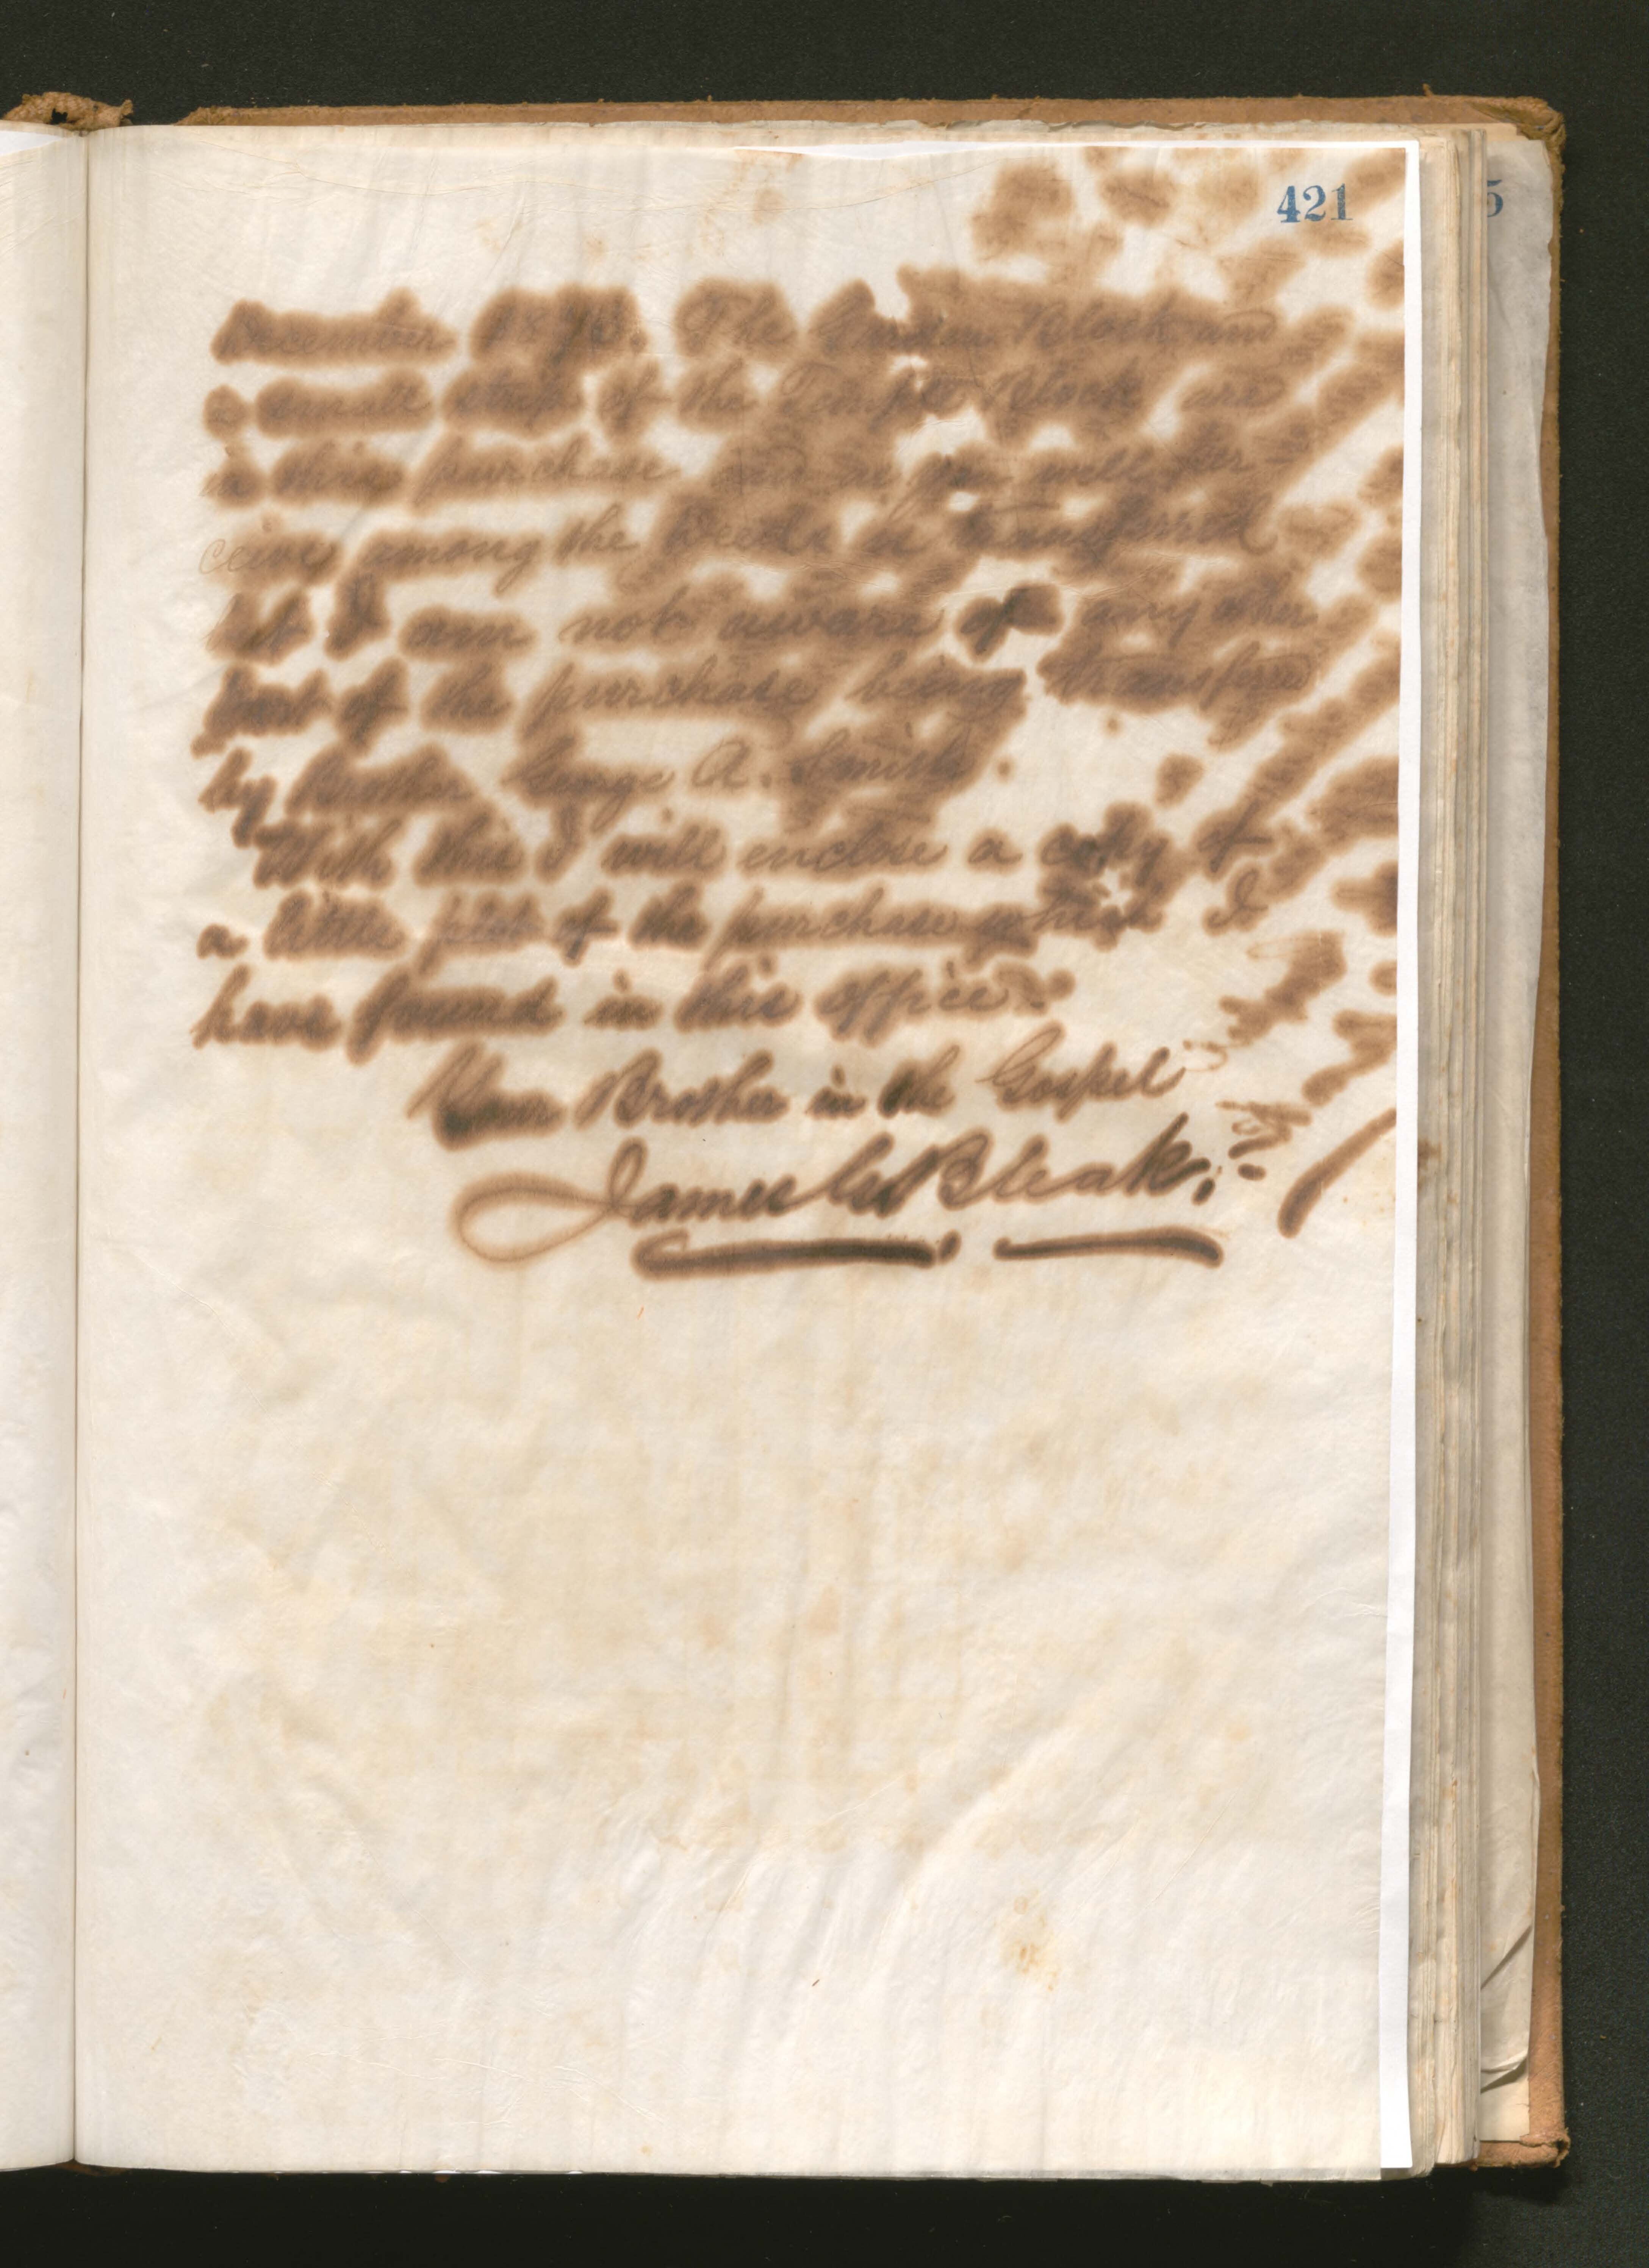 421
December 1873. The Garden Block and
a small strip of the Temple Block are
in this purchase and as you will per-
ceive among the Deeds is transferred
but I am not aware of any other
part of the purchase being transferred
by Brother George A. Smith.
With this I will enclose a copy of
a little plat of the purchase which I
have found in this office.
Your Brother in the Gospel
James G. Bleak.